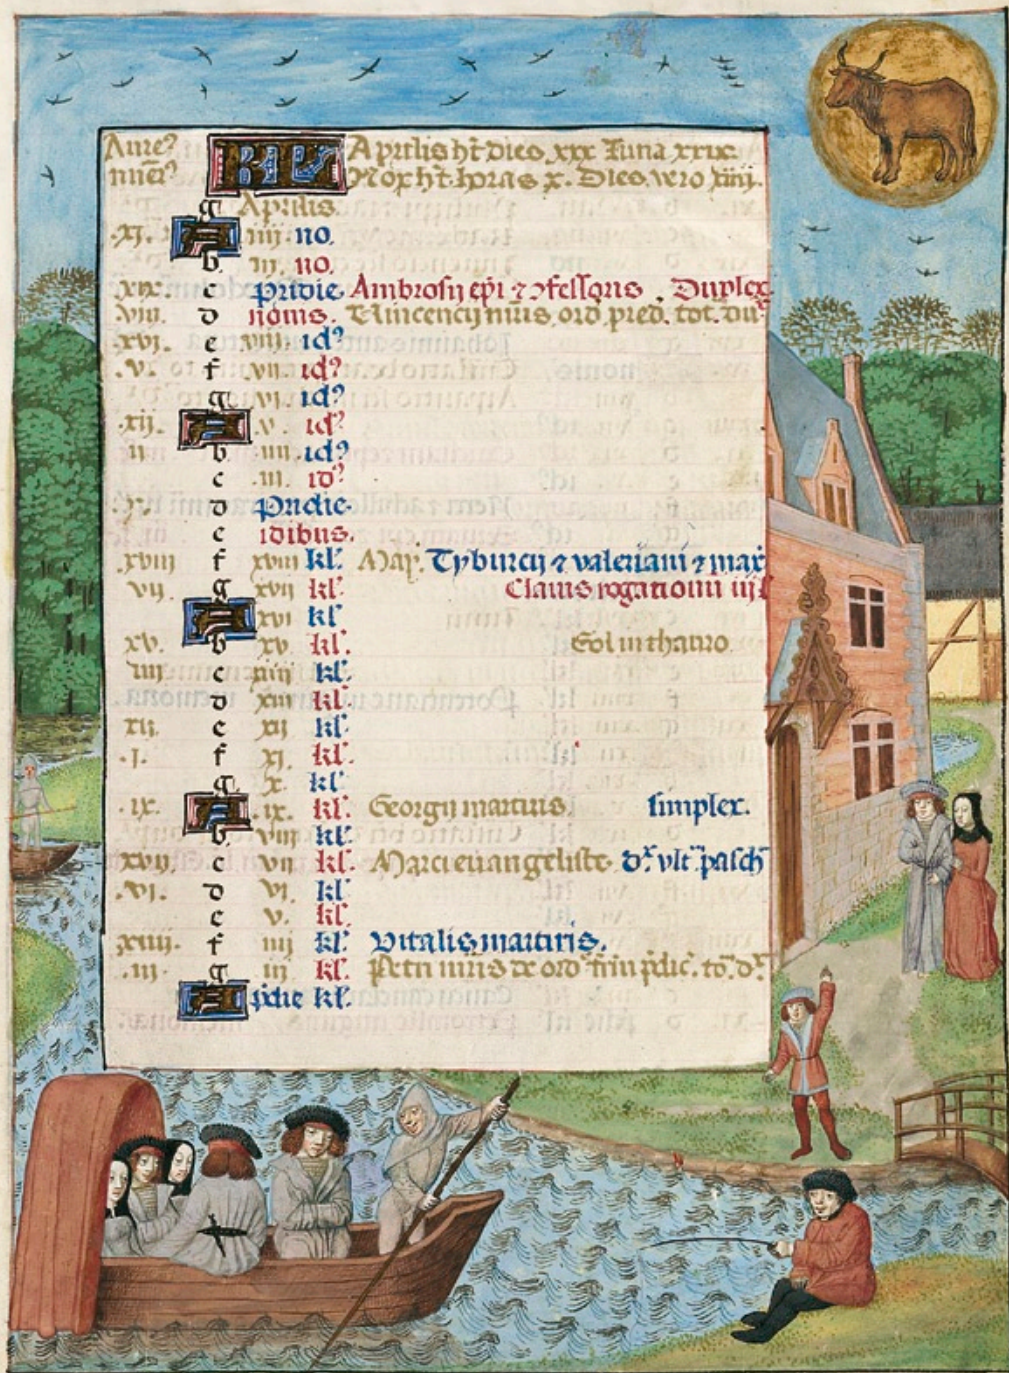 Auref KL Aprilis ht dies xxx Luna xxix
nūer Nox ht horas x. Dies vero xiiij.
g Aprilis.
.xj. A iiij no.
b. iij. no.
xix. c pridie Ambrosij epi ⁊ ꝯfessoris. Duplex
viii. d nonis. Vincencij mris. ord pred. tot. du
xvj. e viii id
.v. f vii. id
g vj. id
.xiij. A .v. id
ii b iiii id
c .iii. id
.x. d Pridie
e idibus.
xviii f xviii kl. Maij. Tyburcij ⁊ valeriani ⁊ max
vij. g xvij kl. Clauis rogationū iij
A xvi kl
xv. b xv kl. Sol in thauro
iiii c xiiij kl.
d xiij kl.
xij. e xij kl.
.j. f xj. kl.
g x. kl.
.ix. A .ix. kl. Georgij martiris. simplex.
b viij kl.
xvij. c vij kl. Marci euangeliste. d vlt pasch
.vj. d vj. kl.
e v. kl.
xiiij. f iiij kl. Vitalis martiris.
.iij. g iij kl. Petri mris de ord frm pdic. to. d
A pdie kl.